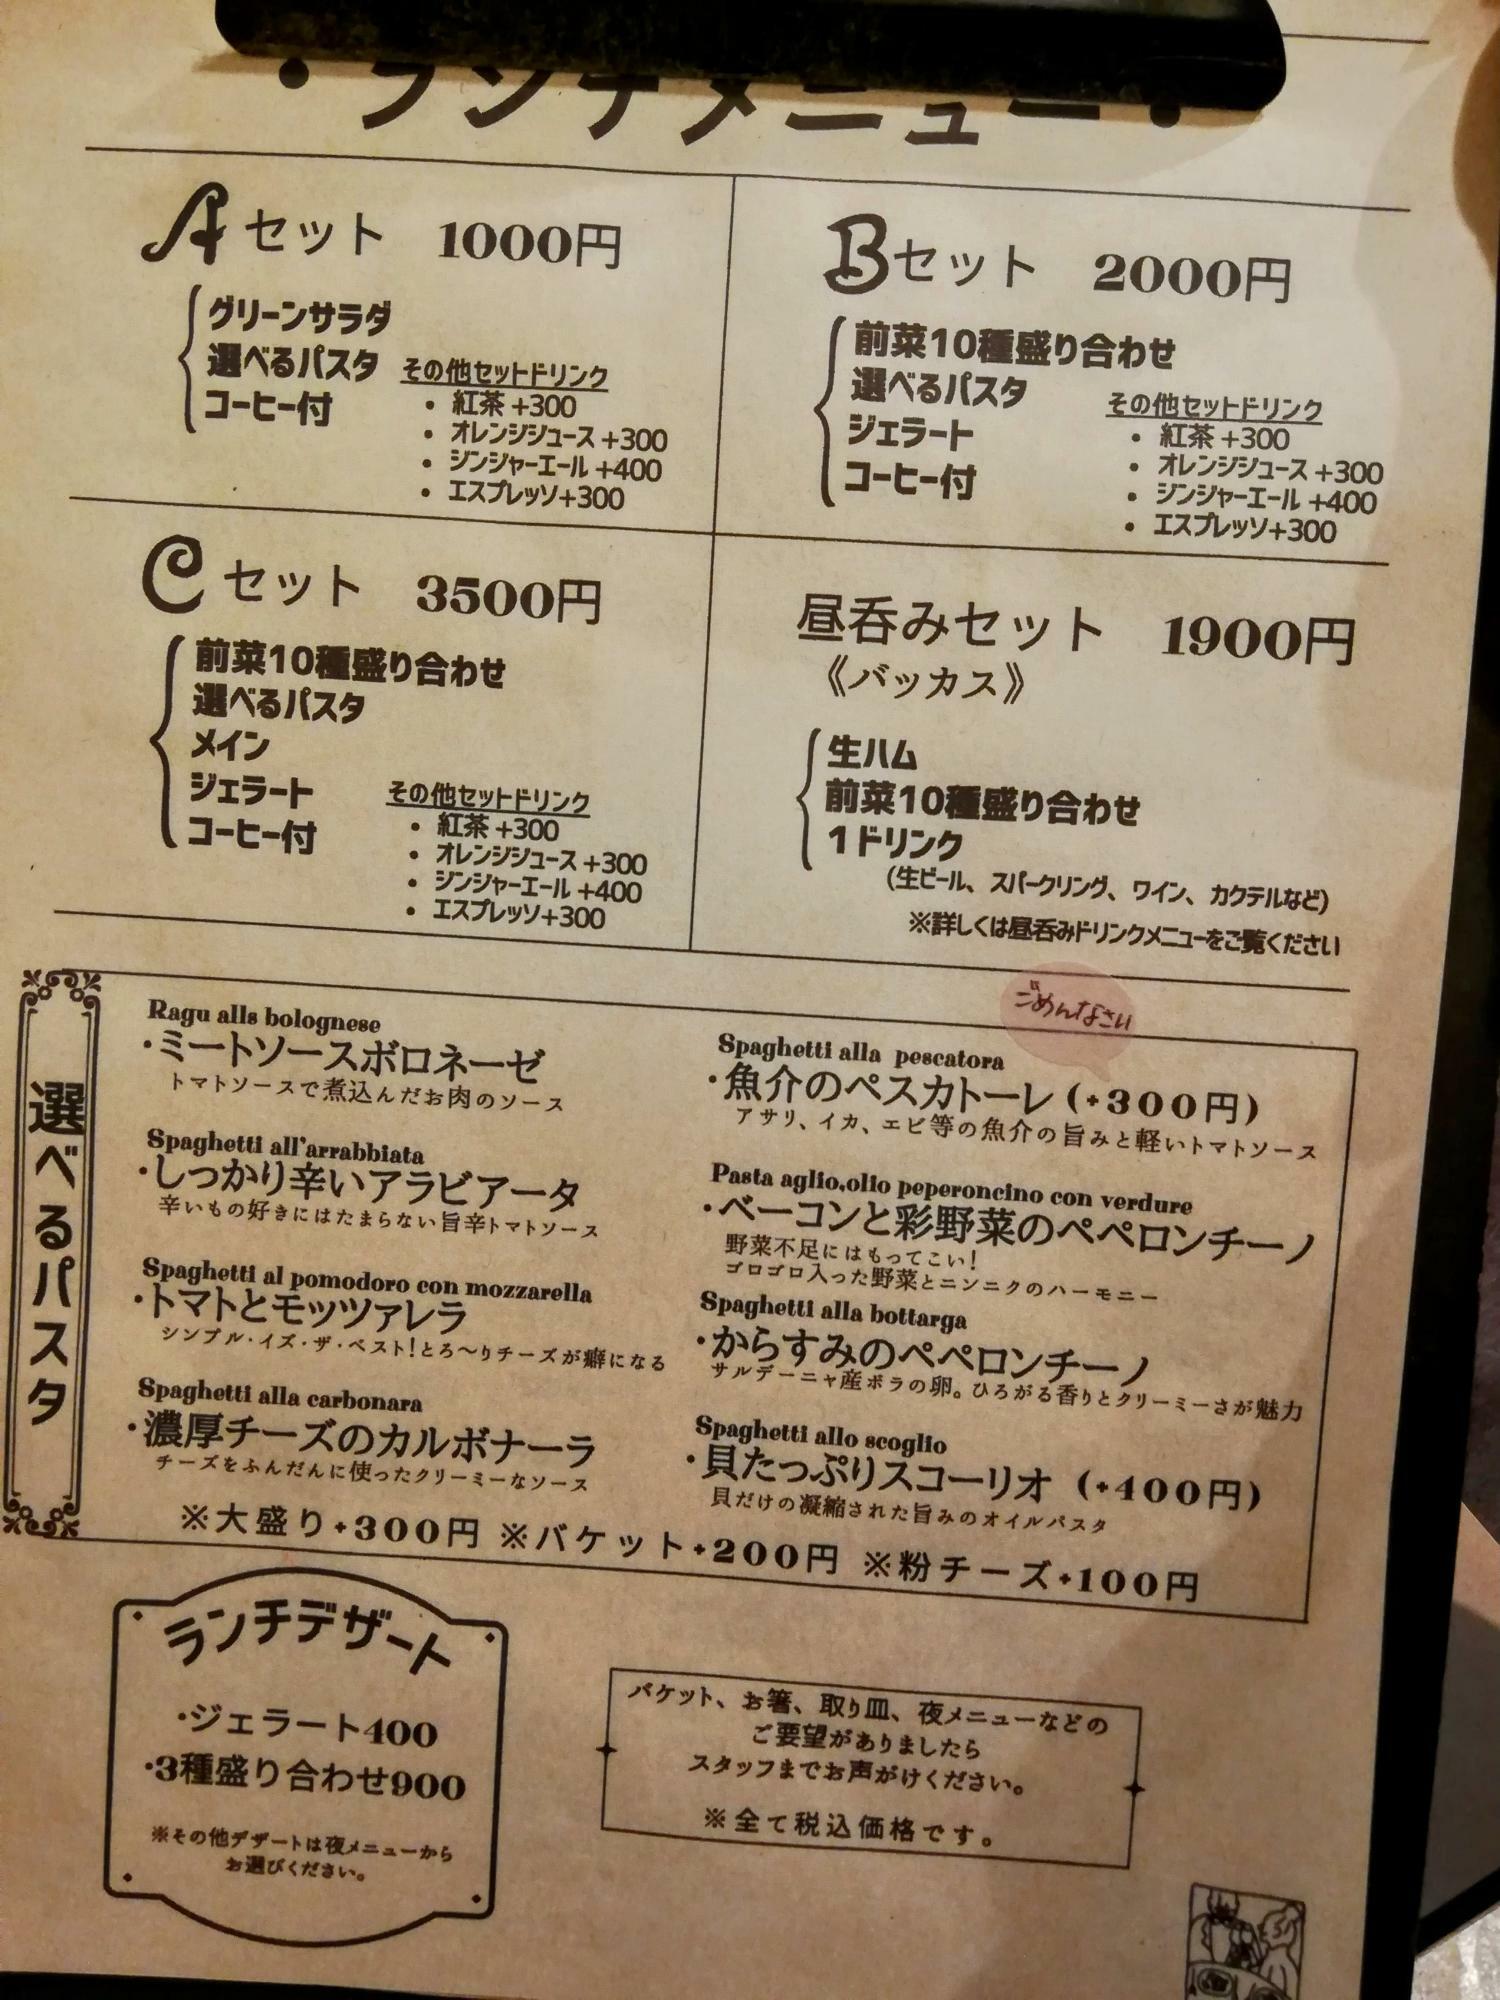 ・ランチメニュー・
Aセット 1000円
グリーンサラダ
選べるパスタ
コーヒー付
その他セットドリンク
・紅茶+300
・オレンジジュース+300
・ジンジャーエール+400
・エスプレッソ+300
Bセット 2000円
前菜10種盛り合わせ
選べるパスタ
ジェラート
コーヒー付
その他セットドリンク
・紅茶+300
・オレンジジュース+300
・ジンジャーエール+400
・エスプレッソ+300
Cセット 3500円
前菜10種盛り合わせ
選べるパスタ
メイン
ジェラート
コーヒー付
その他セットドリンク
・紅茶+300
・オレンジジュース+300
・ジンジャーエール+400
・エスプレッソ+300
昼呑みセット 1900円
《バッカス》
生ハム
前菜10種盛り合わせ
1ドリンク
(生ビール、スパークリング、ワイン、カクテルなど)
※詳しくは昼呑みドリンクメニューをご覧ください
選べるパスタ
Ragu alls bolognese
・ミートソースボロネーゼ
トマトソースで煮込んだお肉のソース
Spaghetti all'arrabbiata
・しっかり辛いアラビアータ
辛いもの好きにはたまらない旨辛トマトソース
Spaghetti al pomodoro con mozzarella
・トマトとモッツァレラ
シンプル・イズ・ザ・ベスト!とろ〜りチーズが癖になる
Spaghetti alla carbonara
・濃厚チーズのカルボナーラ
チーズをふんだんに使ったクリーミーなソース
ごめんなさい
Spaghetti alla pescatora
・魚介のペスカトーレ(+300円)
アサリ、イカ、エビ等の魚介の旨みと軽いトマトソース
Pasta aglio,olio peperoncino con verdure
・ベーコンと彩野菜のペペロンチーノ
野菜不足にはもってこい!
ゴロゴロ入った野菜とニンニクのハーモニー
Spaghetti alla bottarga
・からすみのペペロンチーノ
サルデーニャ産ボラの卵。ひろがる香りとクリーミーさが魅力
Spaghetti allo scoglio
・貝たっぷりスコーリオ(+400円)
貝だけの凝縮された旨みのオイルパスタ
※大盛り+300円 ※バケット+200円 ※粉チーズ+100円
ランチデザート
・ジェラート400
・3種盛り合わせ900
※その他デザートは夜メニューから
お選びください。
バケット、お箸、取り皿、夜メニューなどの
ご要望がありましたら
スタッフまでお声がけください。
※全て税込価格です。